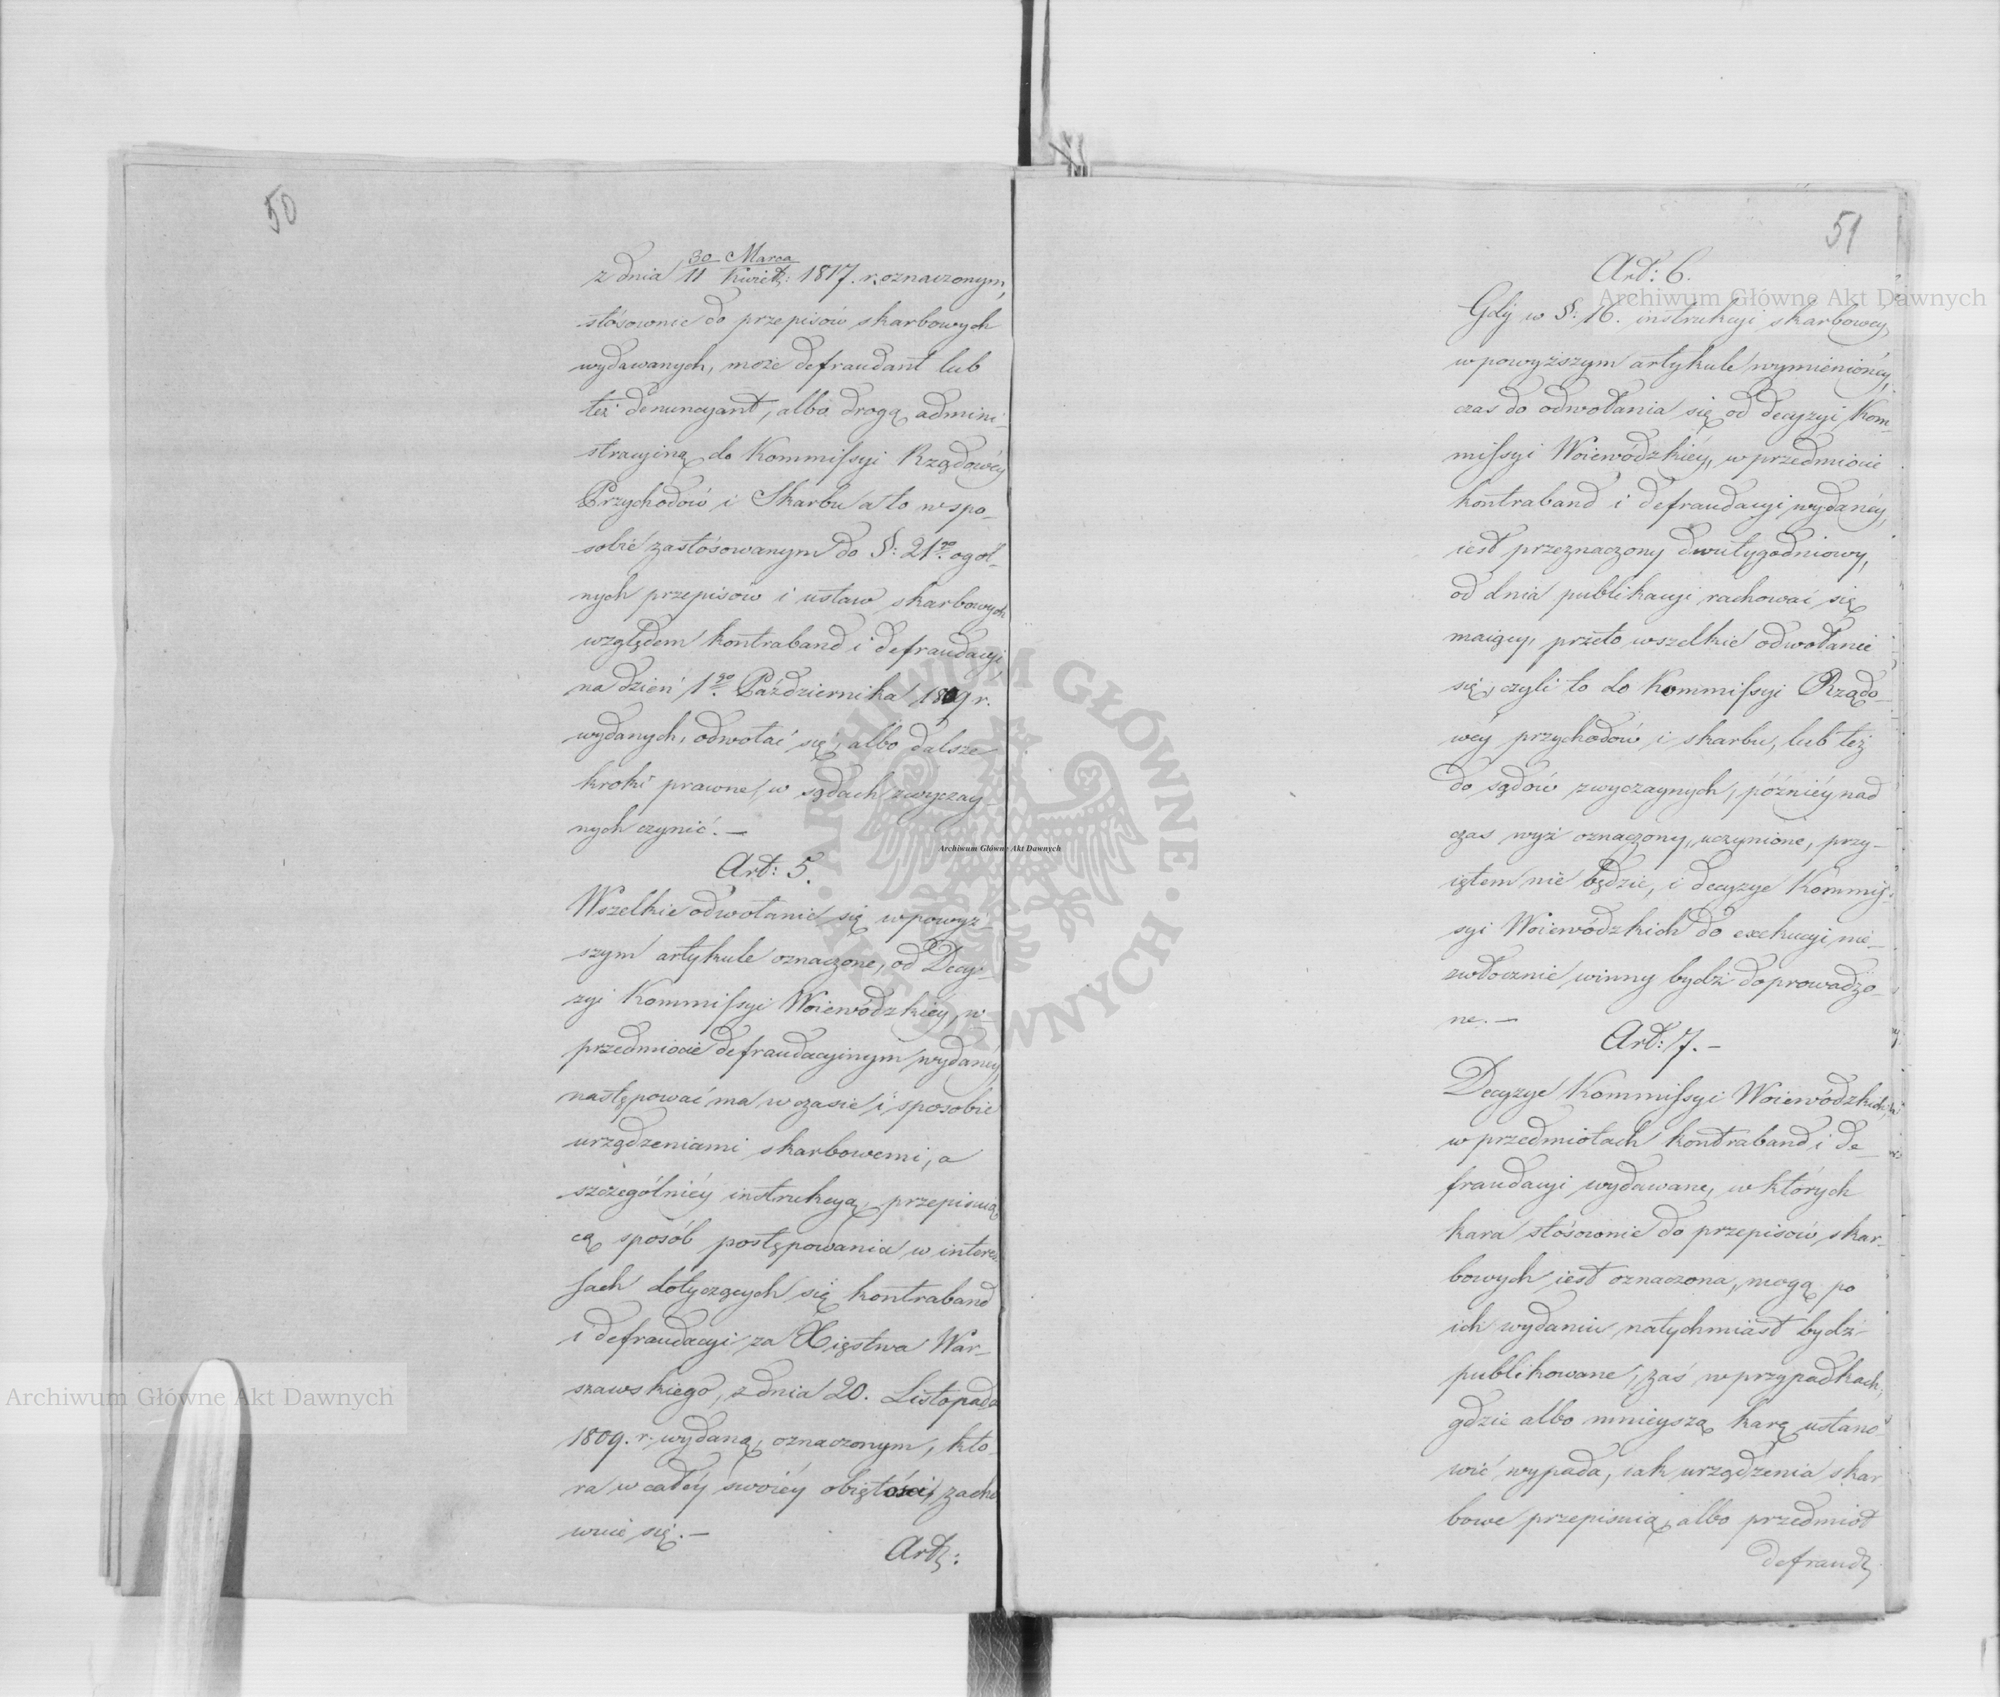 50
z dnia 30 Marca / 11 Kwiet: 1817. r. oznaczonym,
stósownie do przepisów skarbowych
wydawanych, może defraudant lub
też denuncyant, albo drogą admini-
stracyiną do Kommissyi Rządowéy
Przychodów i Skarbu a to w spo-
sobie zastósowanym do §: 21go. ogól-
nych przepisów i ustaw skarbowych
względem kontraband i defraudacyi
na dzień 1go. Października 1809 r.
wydanych, odwołać się, albo dalsze
kroki prawne, w sądach zwyczay-
nych czynić. —
Art: 5.
Wszelkie odwołanie się w powyż-
szym artykule oznaczone, od Decy-
zyi Kommissyi Woiewódzkiéy, w
przedmiocie defraudacyinym wydanéy,
następować ma w czasie i sposobie
urządzeniami skarbowemi, a
szczególniéy instrukcyą, przepisuią
cą sposób postępowania w intere-
sach dotyczących się kontraband
i defraudacyi za Xięstwa War-
szawskiego, z dnia 20. Listopada
1809. r. wydaną, oznaczonym, któ-
ra w całéy swoiéy obiętości zacho
wuie się. —
Art:
51
Art: 6.
Gdy w §: 16. instrukcyi skarbowey,
w powyższym artykule wymienionéy,
czas do odwołania się od decyzyi Kom-
missyi Woiewódzkiéy, w przedmiocie
kontraband i defraudacyi wydanéy,
iest przeznaczony dwutygodniowy,
od dnia publikacyi rachować się
maiący, przeto wszelkie odwołanie
się, czyli to do Kommissyi Rządo-
wéy przychodów i skarbu, lub też
do sądów zwyczaynych, późniéy nad
czas wyż oznaczony, uczynione, przy-
iętem nie będzie, i decyzye Kommis-
syi Woiewódzkich do exekucyi nie-
zwłocznie winny bydź doprowadzo-
ne. —
Art: 7. —
Decyzye Kommissyi Woiewódzkich,
w przedmiotach kontraband i de-
fraudacyi wydawane, w których
kara stósownie do przepisów skar-
bowych iest oznaczona, mogą po
ich wydaniu natychmiast bydź
publikowane, zaś w przypadkach,
gdzie albo mnieyszą karę ustano-
wić wypada, iak urządzenia skar
bowe przepisuią, albo przedmiot
defraud:
Archiwum Główne Akt Dawnych
Archiwum Główne Akt Dawnych
Archiwum Główne Akt Dawnych
ARCHIWUM GŁÓWNE AKT DAWNYCH